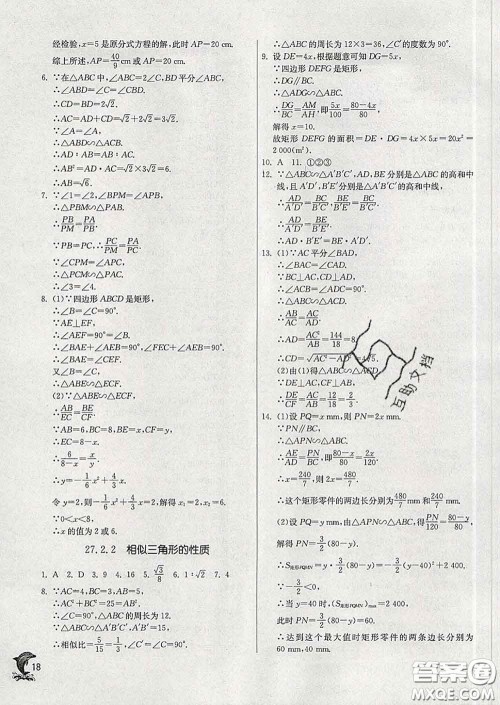 经检验,x=5是原分式方程的解,此时AP=20 cm.
综上所述,AP=40/9 cm或AP=20 cm.
6. ∵在△ABC中,∠ABC=2∠C,BD平分∠ABC,
∴∠ABD=∠C=∠CBD.
∴CD=BD=2√2.
∴AC=AD+CD=√2+2√2=3√2.
∵∠A=∠A,
∴△ABD∽△ACB.
∴AD:AB=AB:AC.
∴AB²=AD·AC=√2×3√2=6.
∴AB=√6.
7. ∵∠1=∠2,∠BPM=∠APB,
∴△BPM∽△PAB.
∴PB/PM=PA/PB.
∵PB=PC,∴PC/PM=PA/PC.
∵∠CPM=∠APC,
∴△CPM∽△APC.
∴∠3=∠4.
8. (1)∵四边形ABCD是矩形,
∴∠B=∠C=90°.
∵AE⊥EF,
∴∠AEF=90°.
∴∠BAE+∠AEB=90°,∠FEC+∠AEB=90°.
∴∠BAE=∠FEC.
又∵∠B=∠C,
∴△ABE∽△ECF.
(2)∵△ABE∽△ECF,
∴AB/EC=BE/CF.
∵AB=6,BC=8,BE=x,CF=y,
∴EC=8-x.
∴6/(8-x)=x/y.
∴y=-1/6x²+4/3x.
令y=2,则-1/6x²+4/3x=2,解得x₁=2,x₂=6.
∵0<x<8,
∴x的值为2或6.
27.2.2 相似三角形的性质
1. A 2. D 3. 9 4. 16 5. √3/8 6. 1:√2 7. 4
8. ∵AC=4,BC=3,AB=5,
∴AC²+BC²=AB².
∴∠C=90°,△ABC的周长为12.
∵△ABC∽△A′B′C′,
∴相似比=5/15=1/3,∠C′=∠C=90°.
18
∴△A′B′C′的周长为12×3=36,∠C′的度数为90°.
9. 设DE=4x,根据题意可知DG=5x.
∵四边形DEFG是矩形,
∴DG∥BC.
∴△ADG∽△ABC.
∴DG/BC=AM/AH,即5x/100=(80-4x)/80.
解得x=10.
故矩形DEFG的面积=DG·DE=4x×5x=20x²=
2 000(m²).
10. A 11. ①②③
12. ∵△ABC∽△A′B′C′,AD,BE分别是△ABC的高和中
线,且A′D′,B′E′分别是△A′B′C′的高和中线,
∴AD/A′D′=AB/A′B′,BE/B′E′=AB/A′B′.
∴AD/A′D′=BE/B′E′.
∴AD·B′E′=BE·A′D′.
13. (1)∵AC平分∠BAD,
∴∠BAC=∠CAD.
∵BC⊥AC,CD⊥AD,
∴∠BCA=∠CDA=90°.
∴△ABC∽△ACD.
∴AC/AD=AB/AC.
∴AD=AC²/AB=144/18=8.
∴CD=√(AC²-AD²)=4√5.
(2)由(1)得△ABC∽△ACD.
∵DE⊥AC,CF⊥AB,
∴DE/CF=AD/AC=8/12=2/3.
14. (1)设PQ=x mm,则PN=2x mm.
∵PN∥BC,
∴△APN∽△ABC.
∴AE/AD=PN/BC,即(80-x)/80=2x/120.
∴x=480/14=240/7.
∴这个矩形零件的两边长分别为480/7 mm和240/7 mm.
(2)设PQ=y mm.由(1)得△APN∽△ABC,则PN/120=
(80-y)/80,解得PN=3/2(80-y).
∴S=3/2y(80-y)=-3/2(y-40)²+2 400.
∴当y=40时,S最大=2 400.
此时PN=3/2(80-y)=60.
∴达到这个最大值时矩形零件的两条边长分别为
60 mm,40 mm.
互助文档
答案圈
MXQE.COM